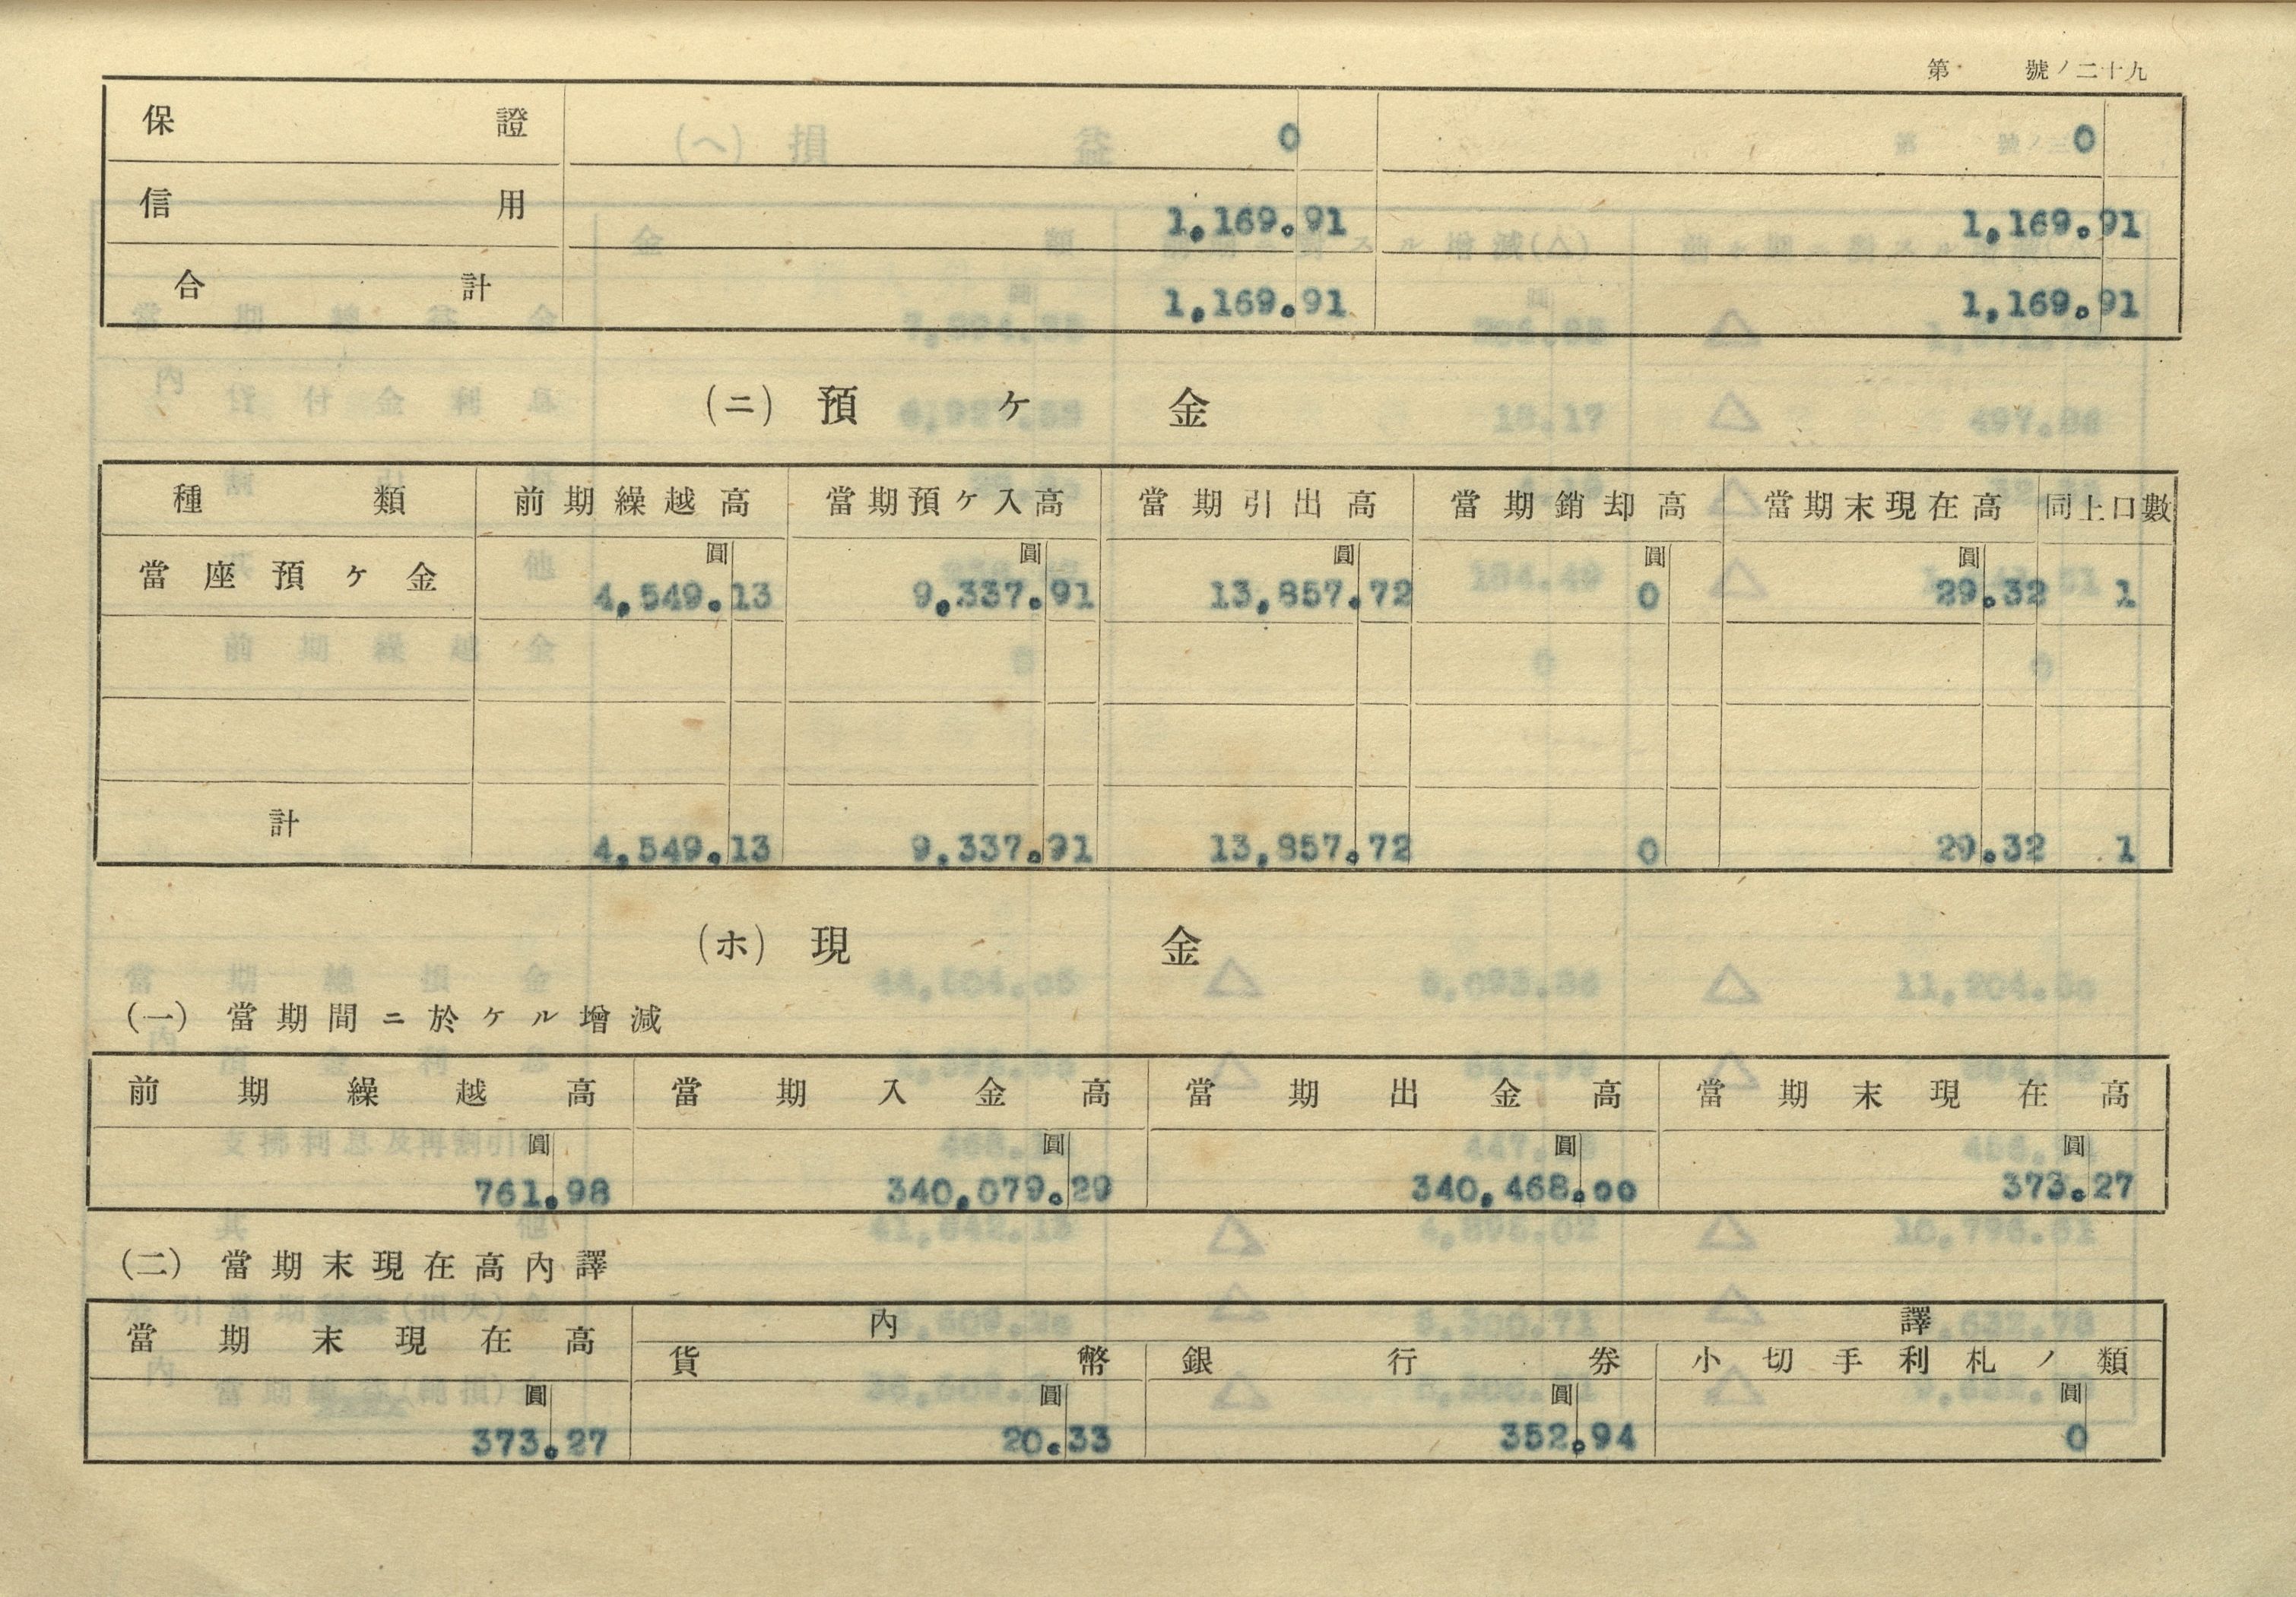 第 號ノ二十九
保證 0 0
信用 1,169.91 1,169.91
合計 1,169.91 1,169.91
(ニ) 預ケ金
種類 前期繰越高 當期預ケ入高 當期引出高 當期銷却高 當期末現在高 同上口數
圓 圓 圓 圓 圓
當座預ケ金 4,549.13 9,337.91 13,857.72 0 29.32 1
計 4,549.13 9,337.91 13,857.72 0 29.32 1
(ホ) 現金
(一) 當期間ニ於ケル增減
前期繰越高 當期入金高 當期出金高 當期末現在高
圓 圓 圓 圓
761.98 340,079.29 340,468.00 373.27
(二) 當期末現在高內譯
當期末現在高 內譯
貨幣 銀行券 小切手利札ノ類
圓 圓 圓 圓
373.27 20.33 352.94 0